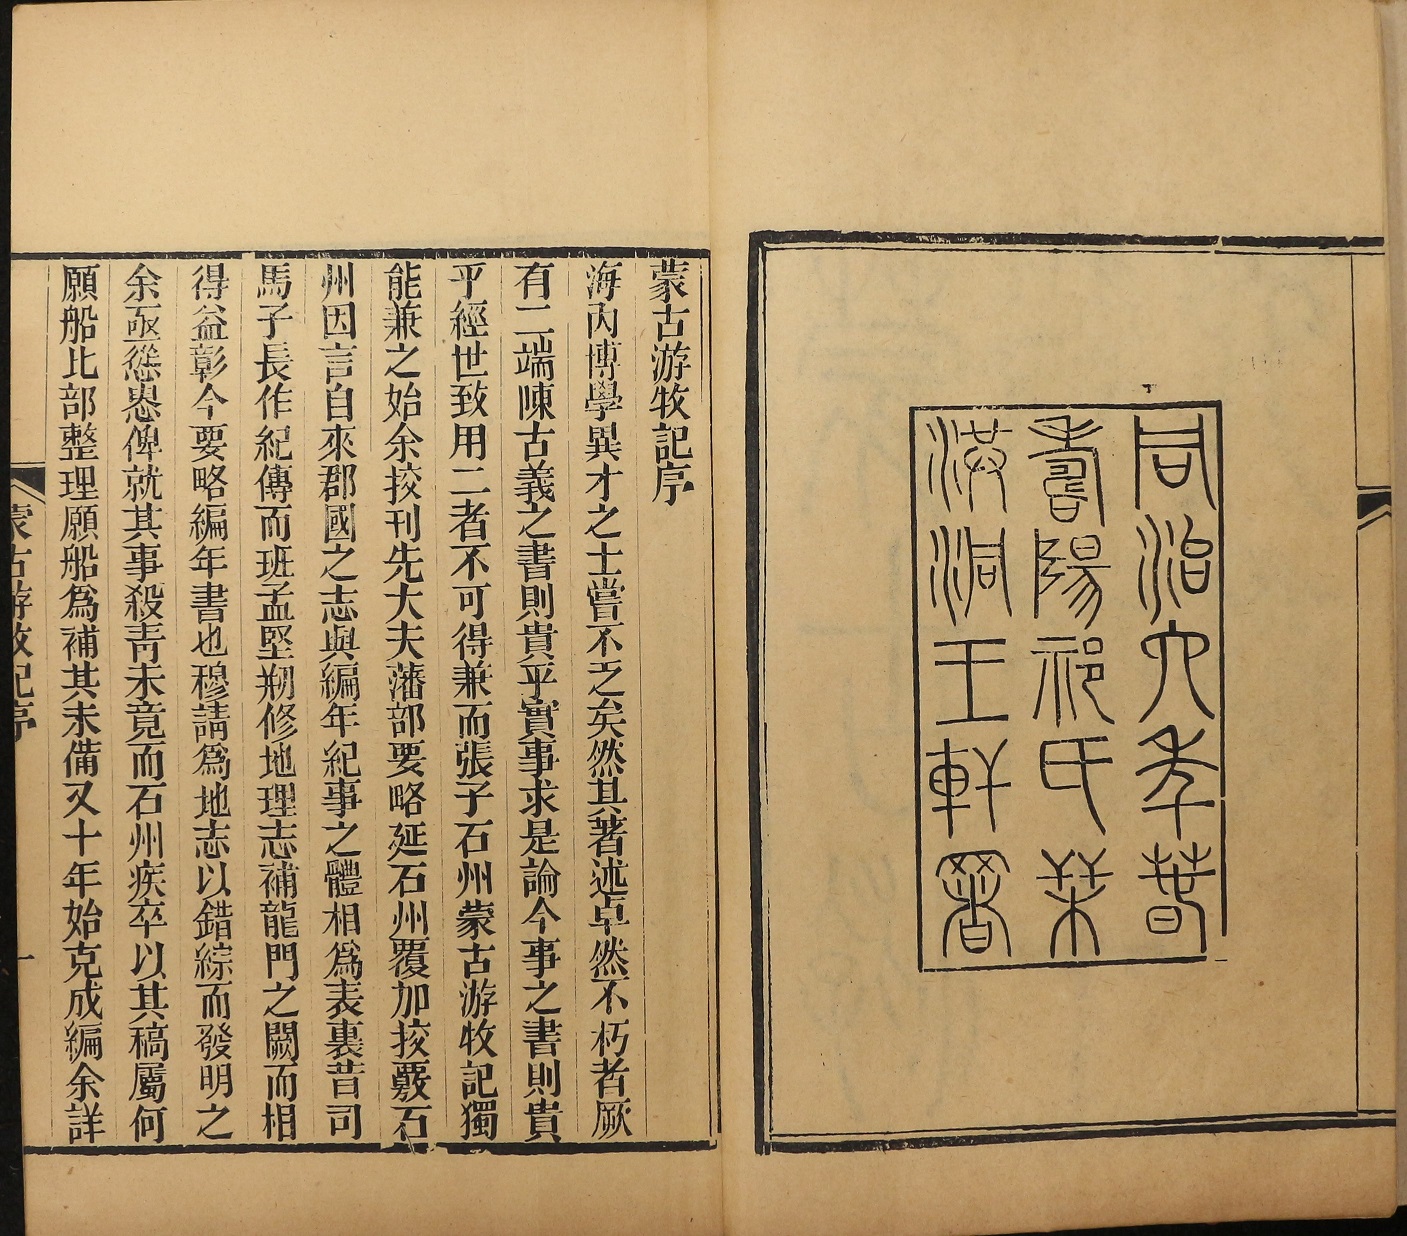 同治六年春
壽陽祁氏栞
洪洞王軒署
蒙古游牧記序
海內博學異才之士嘗不乏矣然其著述卓然不朽者厥
有二端陳古義之書則貴乎實事求是論今事之書則貴
乎經世致用二者不可得兼而張子石州蒙古游牧記獨
能兼之始余挍刊先大夫藩部要略延石州覆加挍覈石
州因言自來郡國之志與編年紀事之體相爲表裏昔司
馬子長作紀傳而班孟堅剙修地理志補龍門之闕而相
得益彰今要略編年書也穆請爲地志以錯綜而發明之
余亟慫恿俾就其事殺青未竟而石州疾卒以其稿屬何
願船比部整理願船爲補其未備又十年始克成編余詳
蒙古游牧記序
一